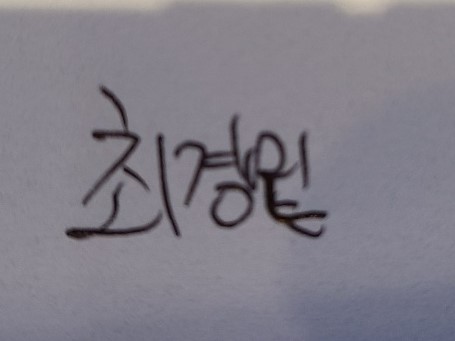 최경원